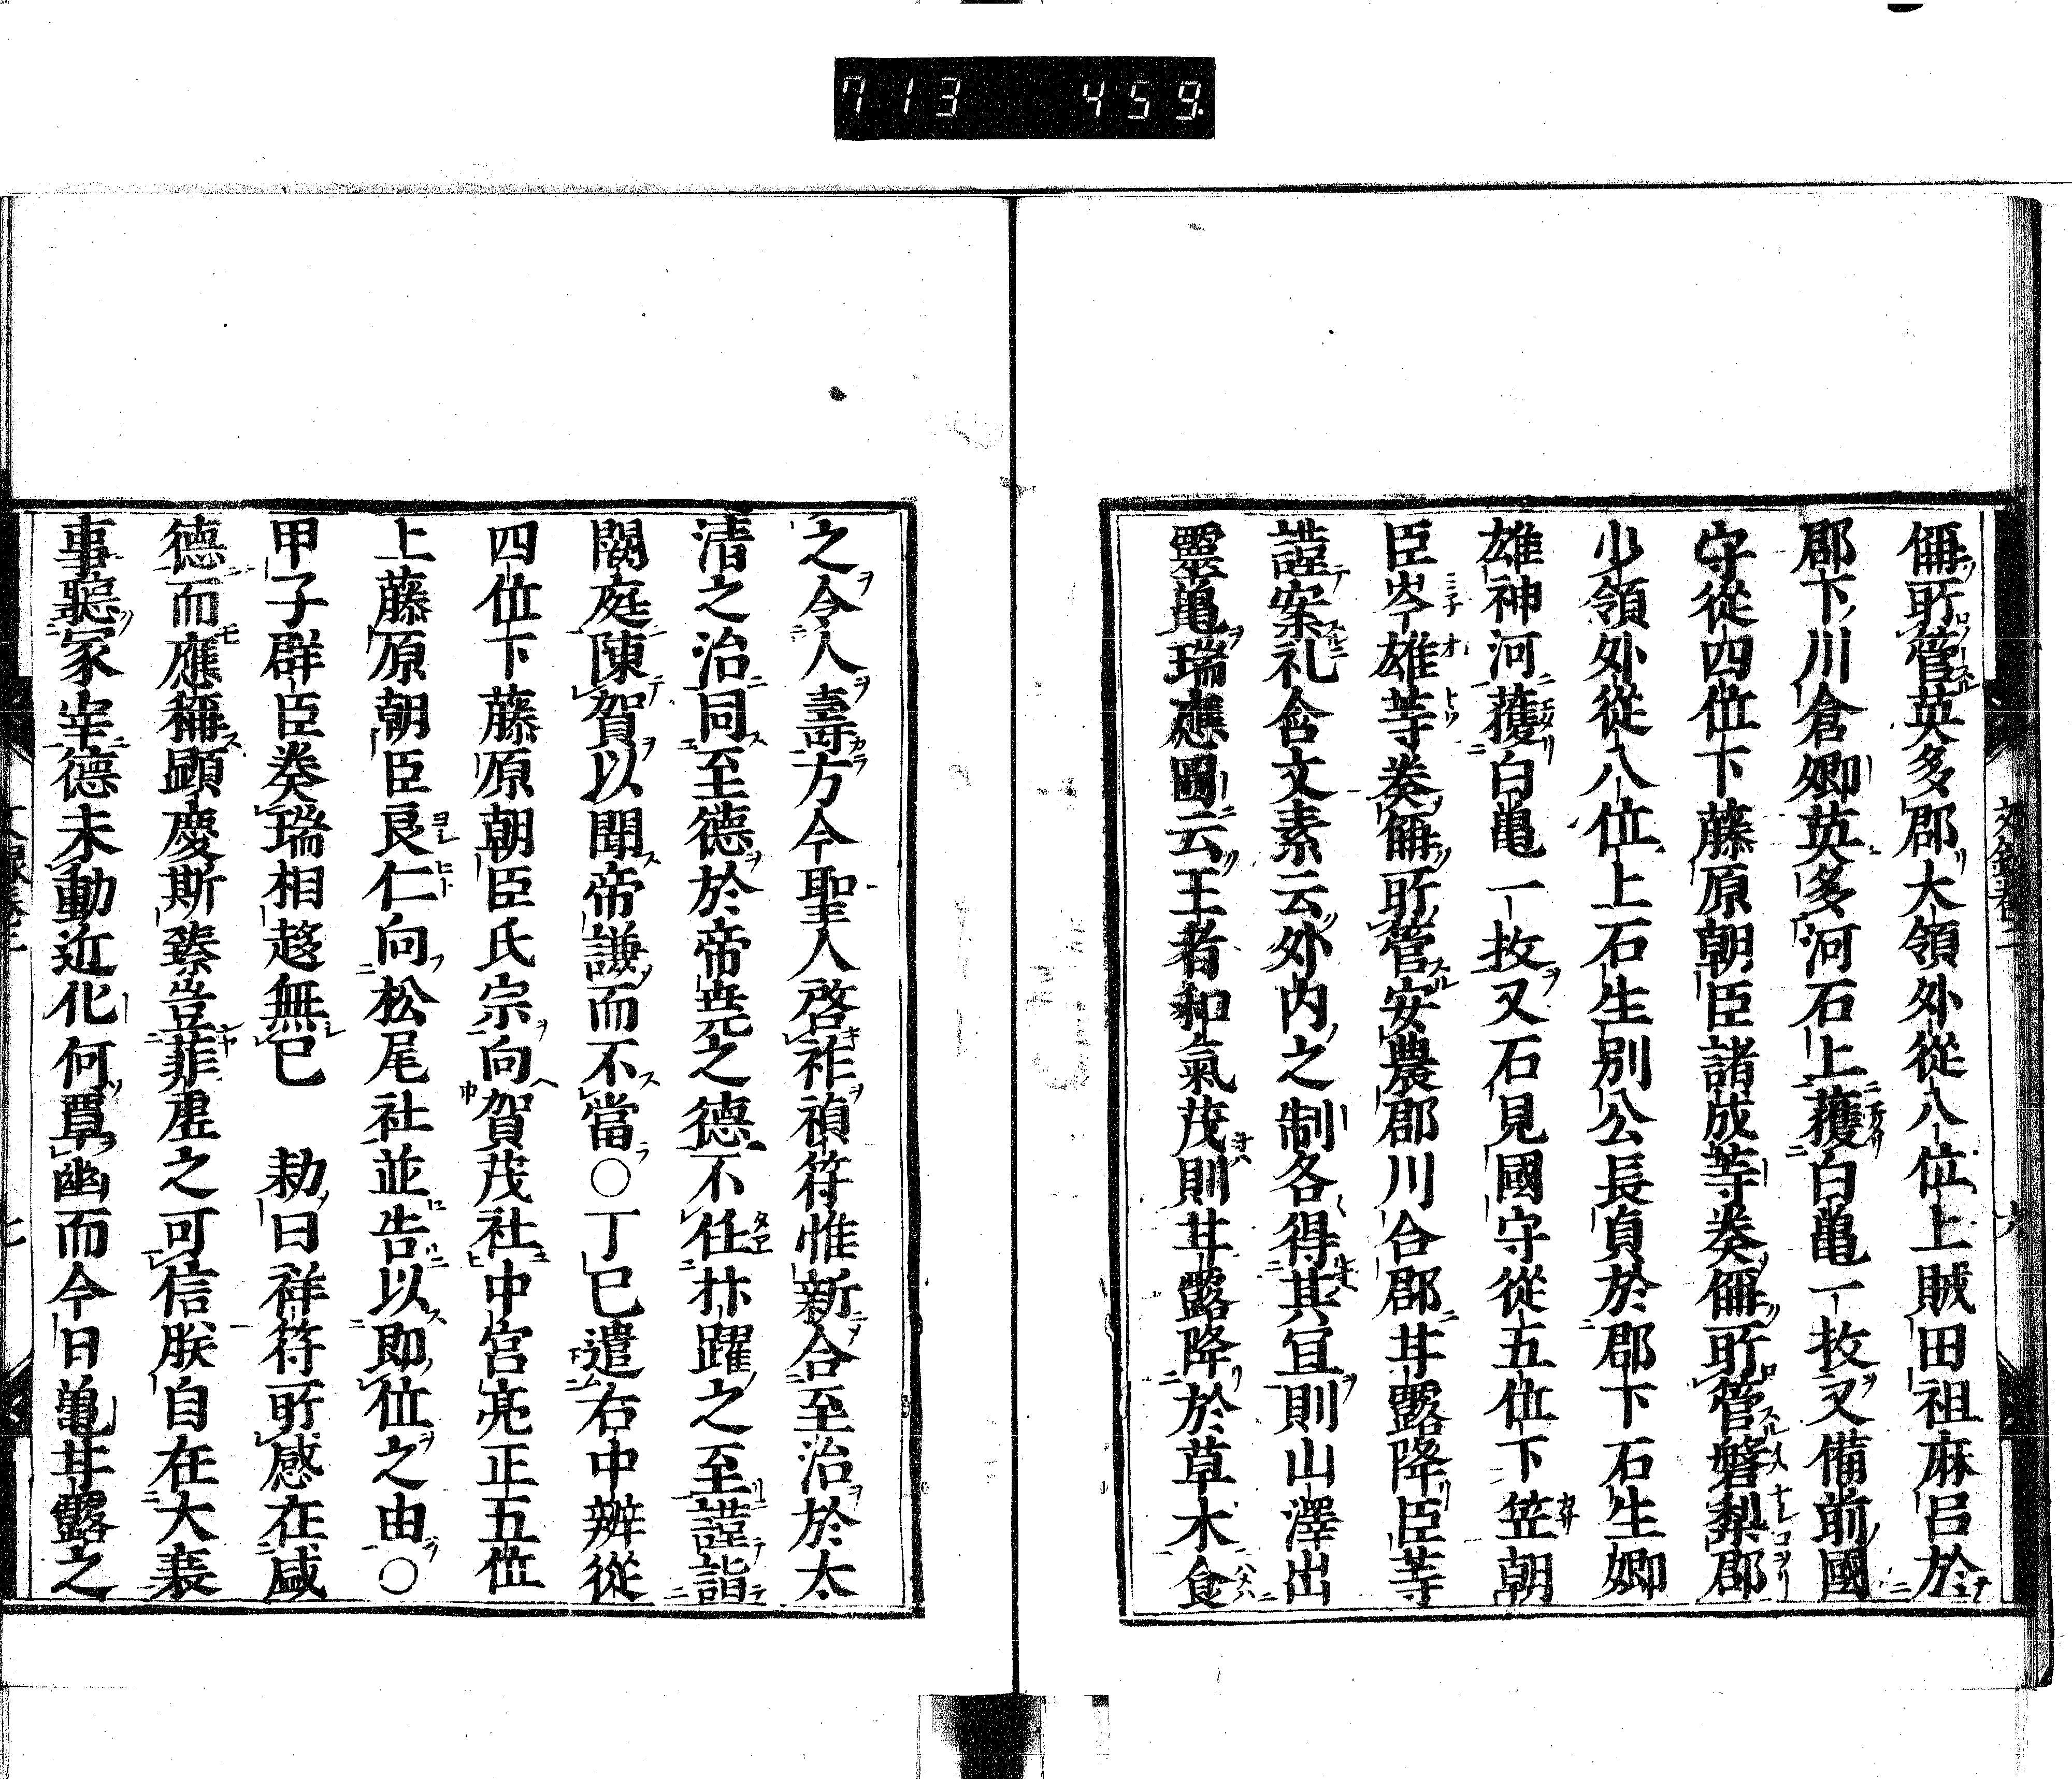 713 459
偁所管英多郡大領外從八位上賊田祖麻呂於
郡下川倉郷英多河石上獲白亀一枚又備前國
守從四位下藤原朝臣諸成等奏偁所管磐梨郡
少領外從八位上石生別公長貞於郡下石生郷
雄神河獲白亀一枚又石見國守從五位下笠朝
臣岑雄等奏偁所管安農郡川合郷甘露降臣等
謹案礼含文素云外内之制各得其宜則山澤出
靈亀瑞應圖云王者和氣茂則甘露降於草木食
之令人壽方今聖人啓祚禎符惟新合至治於太
清之治同至德於帝尭之德不任抃躍之至謹詣
闕庭陳賀以聞帝謙而不當○丁巳遣右中辨從
四位下藤原朝臣氏宗向賀茂社中宮亮正五位
上藤原朝臣良仁向松尾社並告以即位之由○
甲子群臣奏瑞相趍無已　勅曰祥符所感在咸
德而應稱顕慶斯臻豈菲虛之可信朕自在大衰
事聽冢宰德未動近化何覃幽而今日亀甘露之